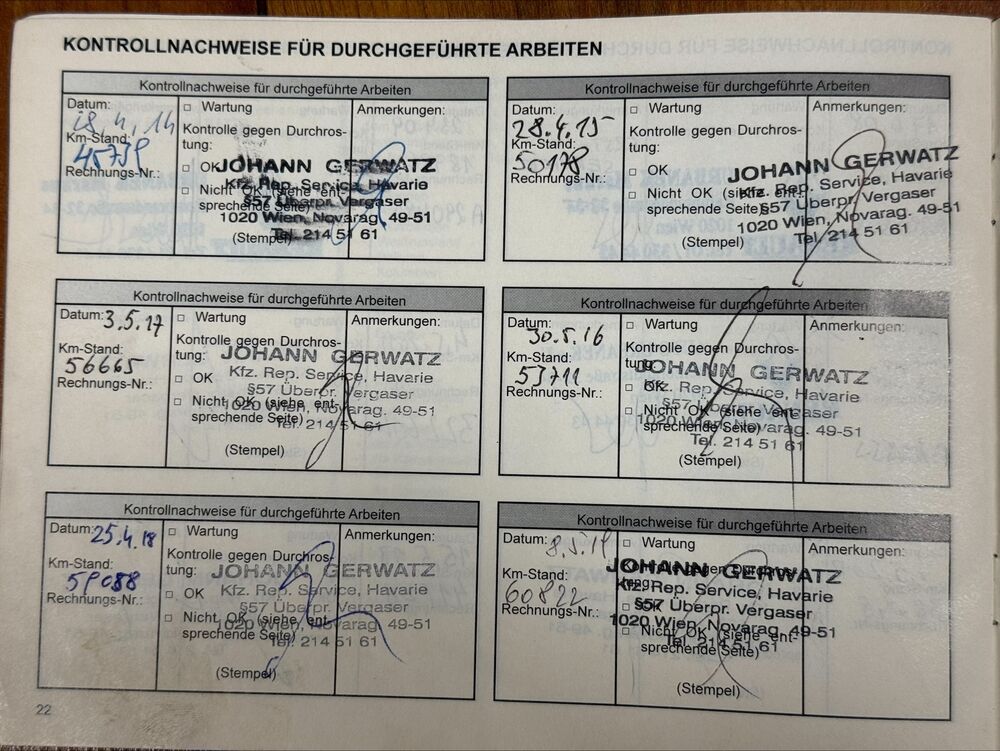 KONTROLLNACHWEISE FÜR DURCHGEFÜHRTE ARBEITEN
Kontrollnachweise für durchgeführte Arbeiten
Datum:
28.4.14
Km-Stand:
45759
Rechnungs-Nr.:
Wartung
Kontrolle gegen Durchros-
tung:
OK
Nicht OK (siehe ent-
sprechende Seite)
(Stempel)
Anmerkungen:
JOHANN GERWATZ
Kfz. Rep. Service, Havarie
§57 Überpr. Vergaser
1020 Wien, Novarag. 49-51
Tel. 214 51 61
Kontrollnachweise für durchgeführte Arbeiten
Datum:
28.4.15
Km-Stand:
50178
Rechnungs-Nr.:
Wartung
Kontrolle gegen Durchros-
tung:
OK
Nicht OK (siehe ent-
sprechende Seite)
(Stempel)
Anmerkungen:
JOHANN GERWATZ
Kfz. Rep. Service, Havarie
§57 Überpr. Vergaser
1020 Wien, Novarag. 49-51
Tel. 214 51 61
Kontrollnachweise für durchgeführte Arbeiten
Datum:
3.5.17
Km-Stand:
56665
Rechnungs-Nr.:
Wartung
Kontrolle gegen Durchros-
tung:
OK
Nicht OK (siehe ent-
sprechende Seite)
(Stempel)
Anmerkungen:
JOHANN GERWATZ
Kfz. Rep. Service, Havarie
§57 Überpr. Vergaser
1020 Wien, Novarag. 49-51
Tel. 214 51 61
Kontrollnachweise für durchgeführte Arbeiten
Datum:
30.5.16
Km-Stand:
53711
Rechnungs-Nr.:
Wartung
Kontrolle gegen Durchros-
tung:
OK
Nicht OK (siehe ent-
sprechende Seite)
(Stempel)
Anmerkungen:
JOHANN GERWATZ
Kfz. Rep. Service, Havarie
§57 Überpr. Vergaser
1020 Wien, Novarag. 49-51
Tel. 214 51 61
Kontrollnachweise für durchgeführte Arbeiten
Datum:
25.4.18
Km-Stand:
59088
Rechnungs-Nr.:
Wartung
Kontrolle gegen Durchros-
tung:
OK
Nicht OK (siehe ent-
sprechende Seite)
(Stempel)
Anmerkungen:
JOHANN GERWATZ
Kfz. Rep. Service, Havarie
§57 Überpr. Vergaser
1020 Wien, Novarag. 49-51
Tel. 214 51 61
Kontrollnachweise für durchgeführte Arbeiten
Datum:
8.5.19
Km-Stand:
60822
Rechnungs-Nr.:
Wartung
Kontrolle gegen Durchros-
tung:
OK
Nicht OK (siehe ent-
sprechende Seite)
(Stempel)
Anmerkungen:
JOHANN GERWATZ
Kfz. Rep. Service, Havarie
§57 Überpr. Vergaser
1020 Wien, Novarag. 49-51
Tel. 214 51 61
22